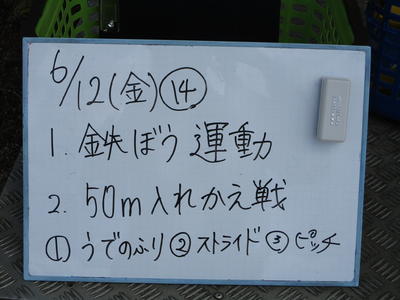 6/12(金)⑭
1. 鉄ぼう運動
2. 50m入れかえ戦
①うでのふり②ストライド③ピッチ